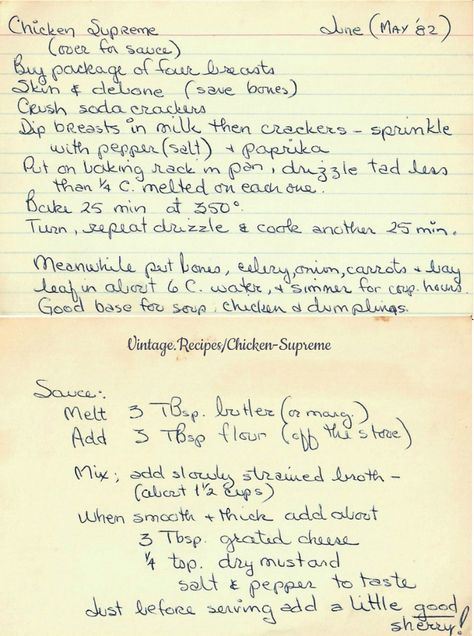 Chicken Supreme June (MAY '82)
(over for sauce)
Buy package of four breasts
Skin & debone (save bones)
Crush soda crackers
Dip breasts in milk then crackers - sprinkle
with pepper (salt) & paprika
Put on baking rack in pan, drizzle tad less
than 1/4 C. melted on each one.
Bake 25 min at 350°.
Turn, repeat drizzle & cook another 25 min.
Meanwhile put bones, celery, onion, carrots & bay
leaf in about 6 C. water, & simmer for coup. hours.
Good base for soup, chicken & dumplings.
Vintage.Recipes/Chicken-Supreme
Sauce:
Melt 3 TBsp. butter (or marg.)
Add 3 TBsp flour (off the stove)
Mix; add slowly strained broth -
(about 1 1/2 cups)
When smooth + thick add about
3 Tbsp. grated cheese
1/4 tsp. dry mustard
salt & pepper to taste
Just before serving add a little good
sherry!